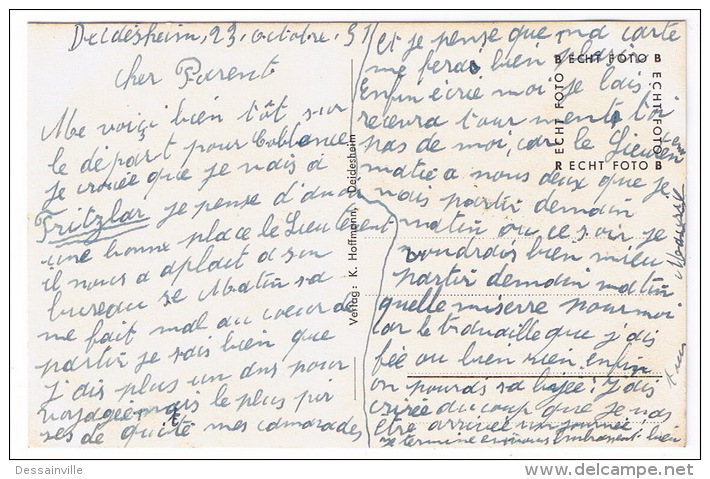 Deidesheim, 23, octobre, 51
cher Parent
Me voiçi bien tôt sur
le départ pour Coblance
je crouée que je vais a
Fritzlar je pense d'avoir
une bonne place le Lieutenent
il nous a aplait a son
bureau se Matin sa
me fait mal au coeur de
partir je sais bien que
j'ais plus un ans pour
voyagée mais le plus pir
ses de quité mes camarades
et je pense que ma carte
me feras bien plaisir
Enfin écrié moi je lais
recevra tourmente toi
pas de moi, car le Lieuten
matiée a nous deux que je
vais partir demain
matin ou ce soir je
voudrais bien mieu
partir demain matin
quelle miserre pour moi
car le trouaille que j'ais
fée ou bien rien enfin
on pourais sa lajée! j'ais
crirée du coup que je vas
être arrivée un journée
Je termine en vous Embrassent bien
Verlag: K. Hoffmann, Deidesheim
B ECHT FOTO B
ECHT FOTO
ECHT FOTO
R ECHT FOTO B
Dessainville
delcampe.net